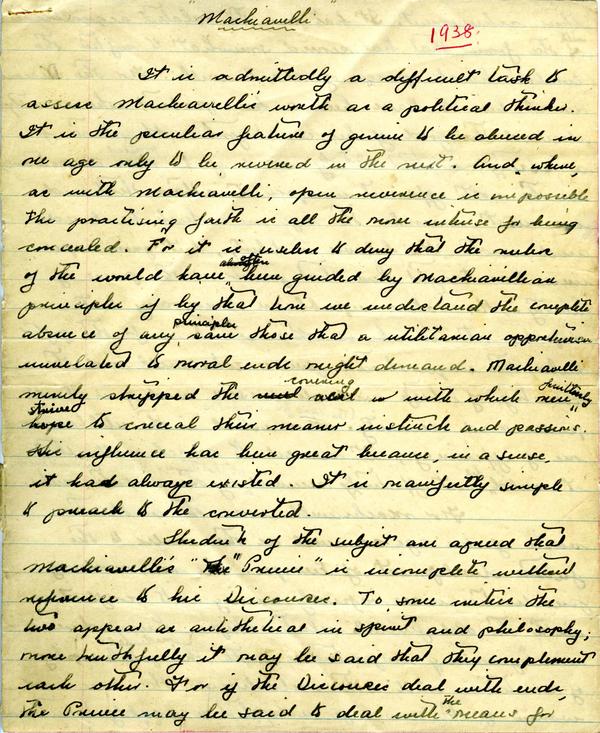 "Machiavelli"
1938.
It is admittedly a difficult task to
assess Machiavelli's worth as a political thinker.
It is the peculiar feature of genius to be abused in
one age only to be revered in the next. And where,
as with Machiavelli, open reverence is impossible
the practising faith is all the more intense for being
concealed. For it is useless to deny that the rulers
often
of the world have been guided by Machiavellian
principles if by that term we understand the complete
principles
absence of any save those that a utilitarian opportunism
unrelated to moral ends might demand. Machiavelli
covering
merely stripped the with which men
strive
to conceal their meaner instincts and passions.
His influence has been great because, in a sense,
it had always existed. It is manifestly simple
to preach to the converted.
Students of the subject are agreed that
Machiavelli's "Prince" is incomplete without
reference to his Discourses. To some writers the
two appear as antithetical in spirit and philosophy;
more truthfully it may be said that they complement
each other. For if the Discourses deal with ends,
the
the Prince may be said to deal with means for